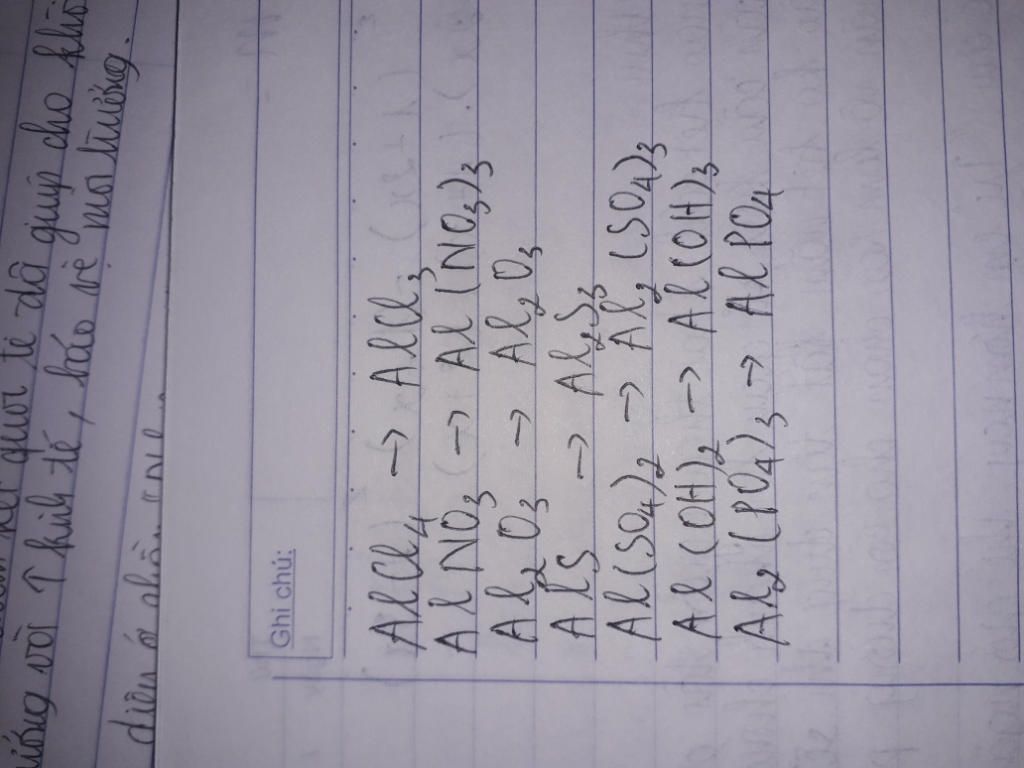 quốc tế đã giúp cho
với kinh tế, bảo vệ môi trường.
Ghi chú:
AlCl₄ → AlCl₃
AlNO₃ → Al(NO₃)₃
Al₂O₃ → Al₂O₃
AlS → Al₂S₃
Al(SO₄)₂ → Al₂(SO₄)₃
Al(OH)₂ → Al(OH)₃
Al₂(PO₄)₃ → AlPO₄